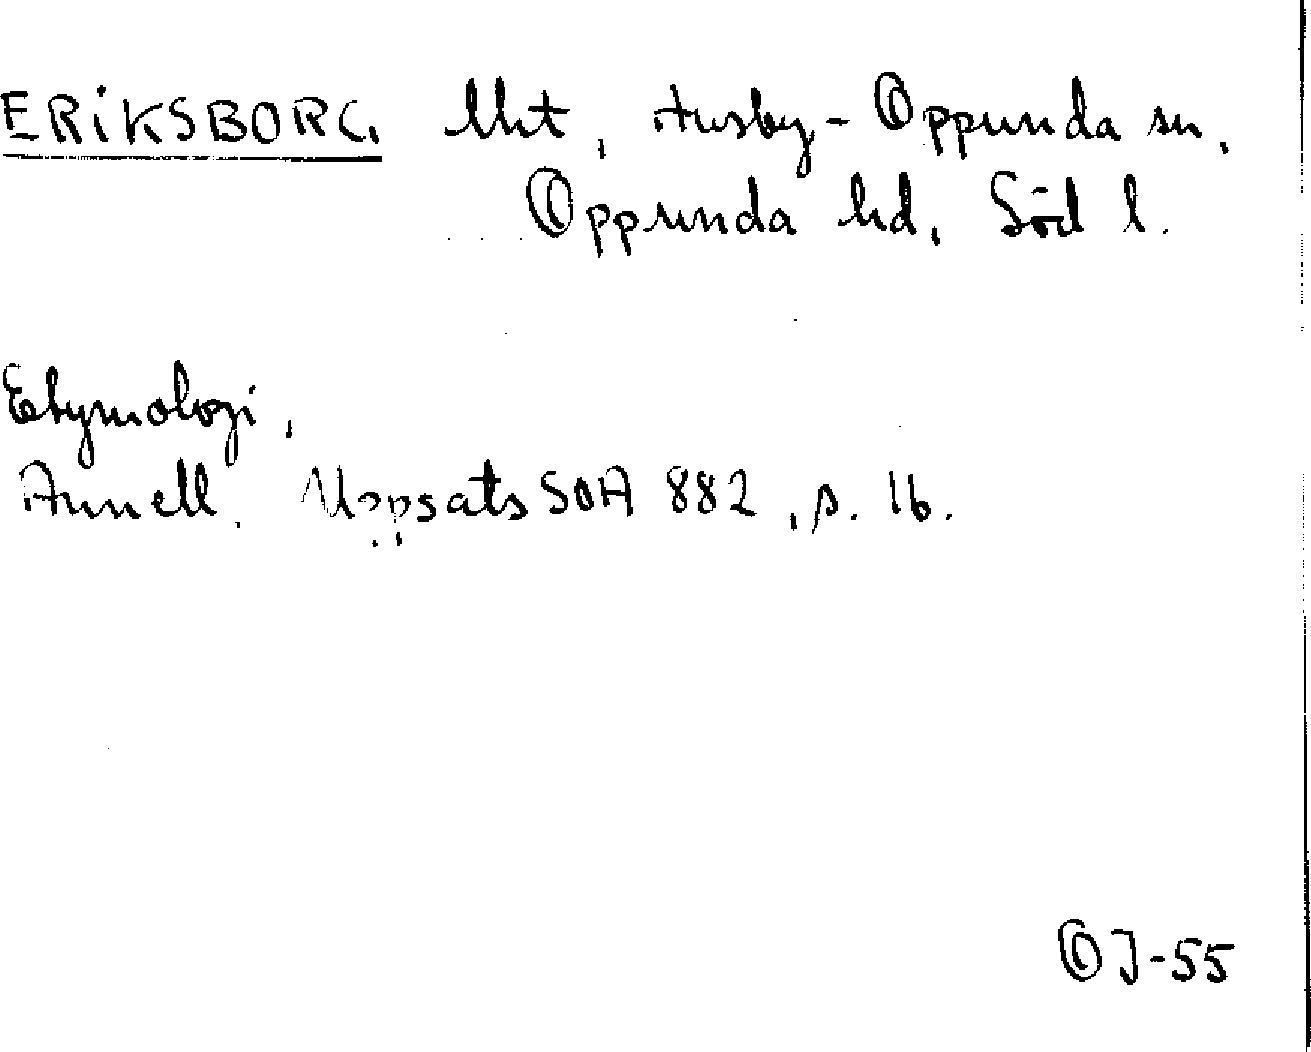 ERIKSBORG lht, Husby-Oppunda sn,
Oppunda hd, Söd l.
Etymologi,
Annell. Uppsats SOA 882, s. 16.
OJ-55